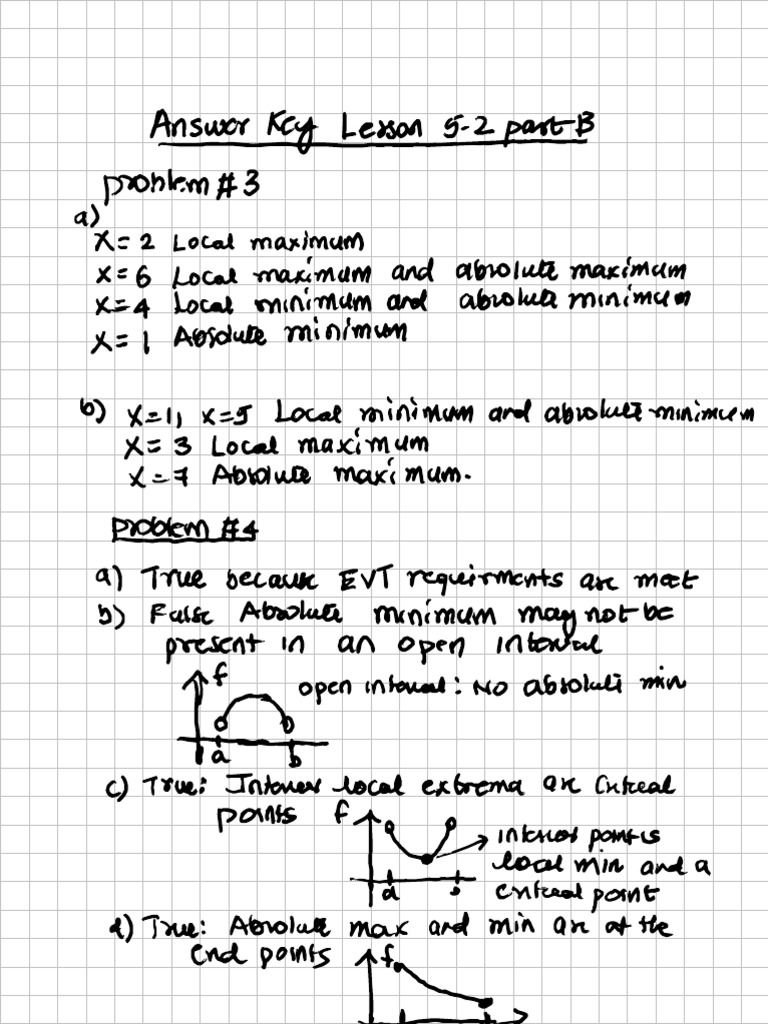 Answer Key Lesson 5-2 part B
problem # 3
a)
x = 2 Local maximum
x = 6 Local maximum and absolute maximum
x = 4 Local minimum and absolute minimum
x = 1 Absolute minimum
b) x=1, x=5 Local minimum and absolute minimum
x = 3 Local maximum
x = 7 Absolute maximum.
problem #4
a) True because EVT requirments are meet
b) False Absolute minimum may not be
present in an open interval
f
open interval: No absolute min
a b
c) True: Interior local extrema are Critical
points f
interior point is
local min and a
a b critical point
d) True: Absolute max and min are at the
end points f